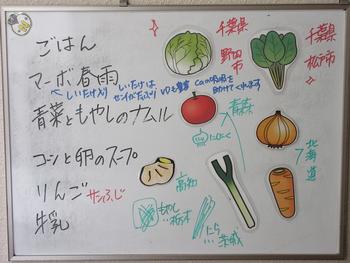 ごはん
マーボ春雨
しいたけ入り
しいたけは
センイがたっぷり VDも豊富 Caの吸収を
助けてくれます
青菜ともやしのナムル
コーンと卵のスープ
りんご サンふじ
牛乳
千葉県
野田市
千葉県
松戸市
青森
にんにく
北海道
高知
もやし
栃木
にら
茨城